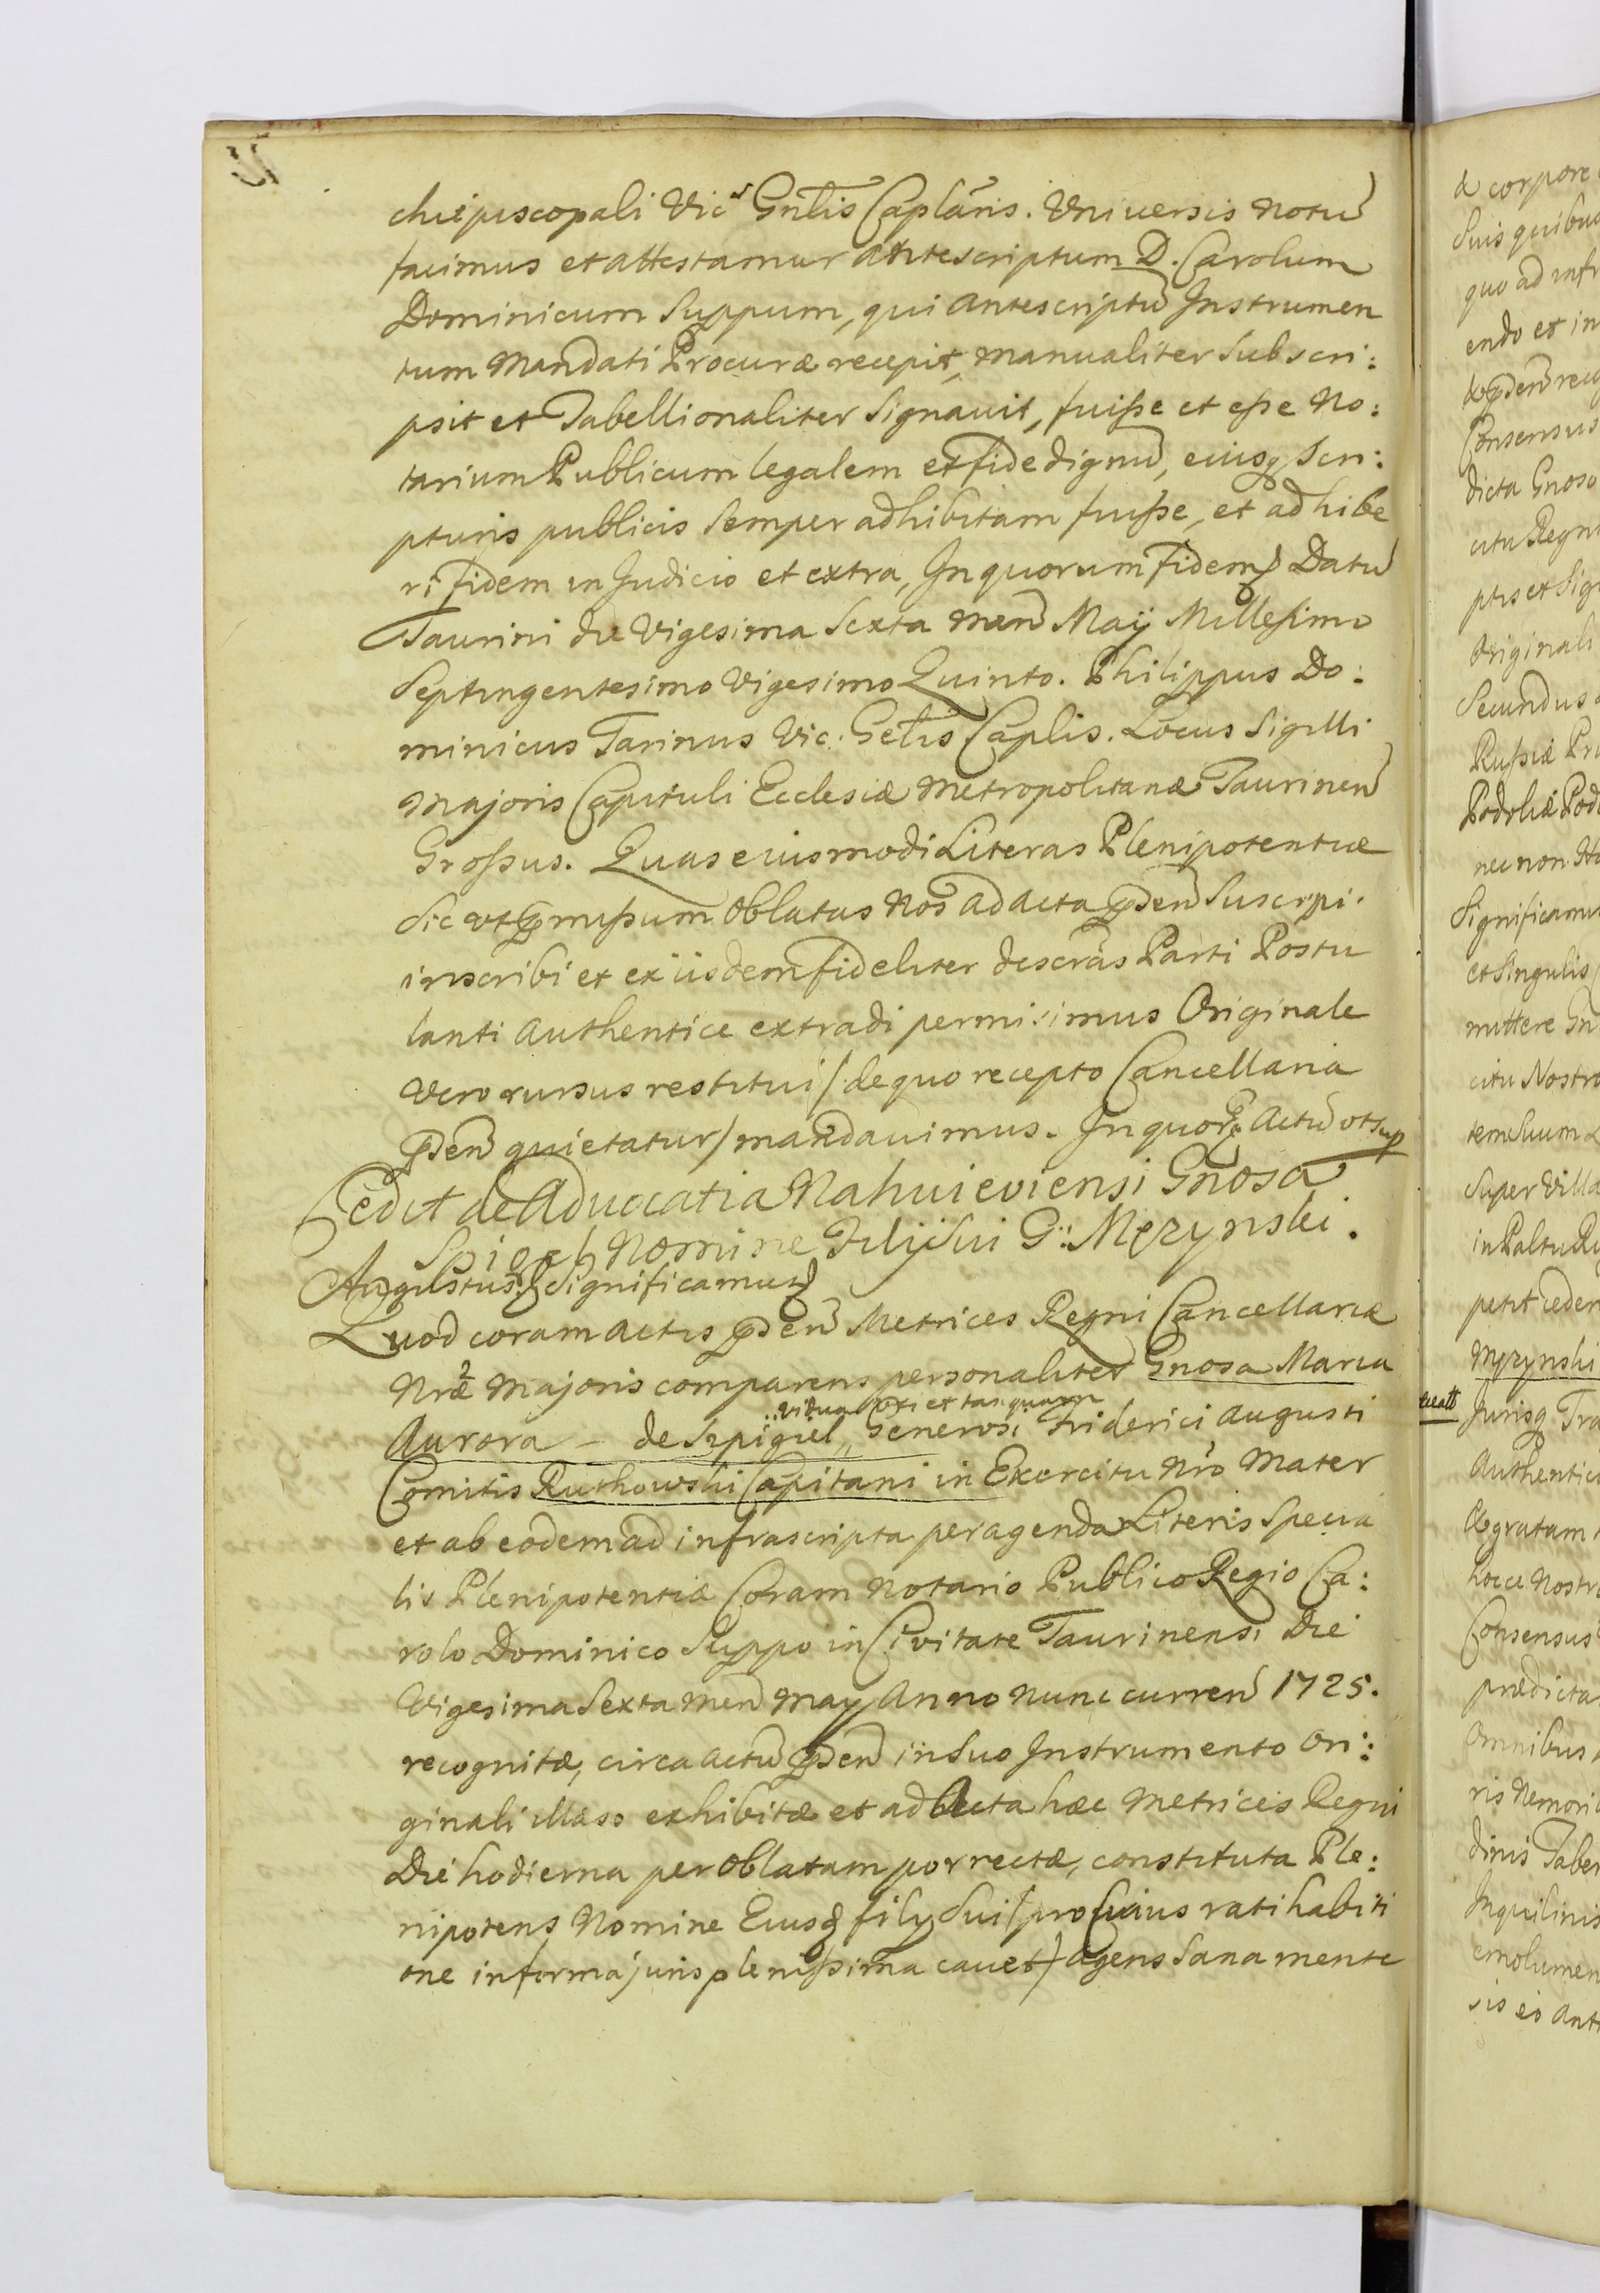 chiepiscopali Vics Gñlis Caplãris. Universis Notũ
facimus et attestamur antescriptum D. Carolum
Dominicum Suppum, qui antescriptũ Instrumen
tum Mandati Procuræ recepit, manualiter subscri:
psit et Tabellionaliter Signavit, fuiſse et eſse No:
tarium Publicum legalem et fide dignũ, eiusq Scri:
pturis publicis semper adhibitam fuiſse, et adhibe
ri fidem in Judicio et extra, In quorum Fidem Datũ
Taurini die Vigesima Sexta Menß Maÿ Milleſimo
Septingentesimo Vigesimo Quinto. Philippus Do:
minicus Tarinus Vic. Gelis Caplis. Locus Sigilli
Majoris Capituli Ecclesiæ Metropolitanæ Taurinen
Groſsus. Quas eiusmodi Literas Plenipotentiæ
Sic ut pmiſsum oblatas Nos ad acta psen suscipi.
inscribi et ex iisdem fideliter descrãs Parti Postu
lanti Authentice extradi permisimus Originale
Vero rursus restitui / de quo recepto Cancellaria
psen quietatur / mandavimus. In quor Actũ ut sup
Cedit de Advocatia Nahuieviensi Gñosa
Spigel Nomine Filij Sui G: Męzynski.
Augustus Significamus
Quod coram actis psen Metrices Regni Cancellariæ
Nræ Majoris comparens personaliter Gnosa Maria
vidua uti et tanquam
Aurora – de Szpigiel, Generosi Friderici Augusti
Comitis Ruthowski Capitani in Exercitu Nro Mater
et ab eodem ad infrascripta peragenda Literis Specia
lis Plenipotentiæ Coram Notario Publico Regio Ca:
rolo Dominico Suppo in Civitate Taurinensi Die
Vigesima Sexta Men May Anno Nunc curren 1725.
recognitæ, circa actũ psen in Suo Instrumento Ori:
ginali illæso exhibitæ et ad Acta hæc Metrices Regni
Die hodierna per Oblatam porrectæ, constituta Ple:
nipotens Nomine Eiusq filÿ Sui / pro Cuius ratihabiti
one in forma juris pleniſsima cavet / agens Sana mente
& corpore
Suis quibus
quo ad infr
endo et in
Consensus
dicta Gnoso
ptis et Sig
Originali
Secundus
Ruſsiæ Pru
Podoliæ Pod
nec non
Significamus
et Singulis
mittere Gn
citu Nostro
tem Suum
Super Villa
petit ceden
Męzynski
Jurisq Tra
Authentici
gratam
hocce Nostro
Consensus
prædicta
Omnibus
ris Nemori
dinis Taber
Inquilinis
emolumen
sis eo ant